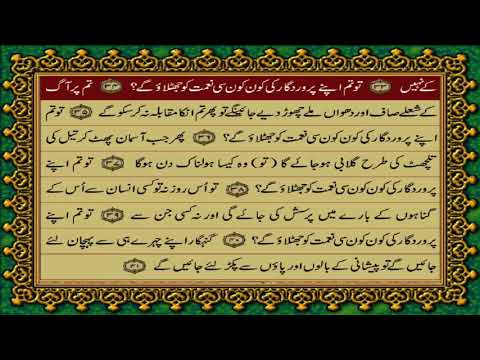 کے نہیں ﴿۳۳﴾ تو تم اپنے پروردگار کی کون کون سی نعمت کو جھٹلاؤ گے؟ ﴿۳۴﴾ تم پر آگ
کے شعلے صاف اور دھواں ملے چھوڑ دیے جائینگے تو پھر تم انکا مقابلہ نہ کر سکو گے ﴿۳۵﴾ تو تم
اپنے پروردگار کی کون کون سی نعمت کو جھٹلاؤ گے؟ ﴿۳۶﴾ پھر جب آسمان پھٹ کر تیل کی
تلچھٹ کی طرح گلابی ہو جائے گا (تو) وہ کیسا ہولناک دن ہوگا ﴿۳۷﴾ تو تم اپنے
پروردگار کی کون کون سی نعمت کو جھٹلاؤ گے؟ ﴿۳۸﴾ تو اُس روز نہ تو کسی انسان سے اُس کے
گناہوں کے بارے میں پرسش کی جائے گی اور نہ کسی جن سے ﴿۳۹﴾ تو تم اپنے
پروردگار کی کون کون سی نعمت کو جھٹلاؤ گے؟ ﴿۴۰﴾ گنہگار اپنے چہرے ہی سے پہچان لئے
جائیں گے تو پیشانی کے بالوں اور پاؤں سے پکڑ لئے جائیں گے ﴿۴۱﴾